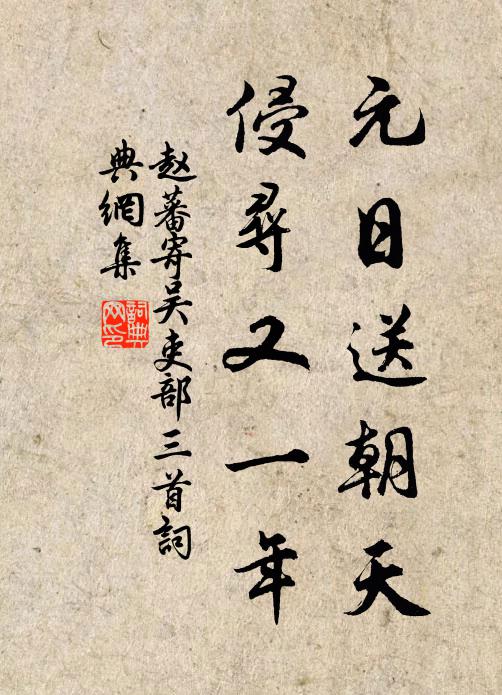 元日送朝天
侵尋又一年
赵蕃寄吴吏部三首詞
典網集
詞典
网印